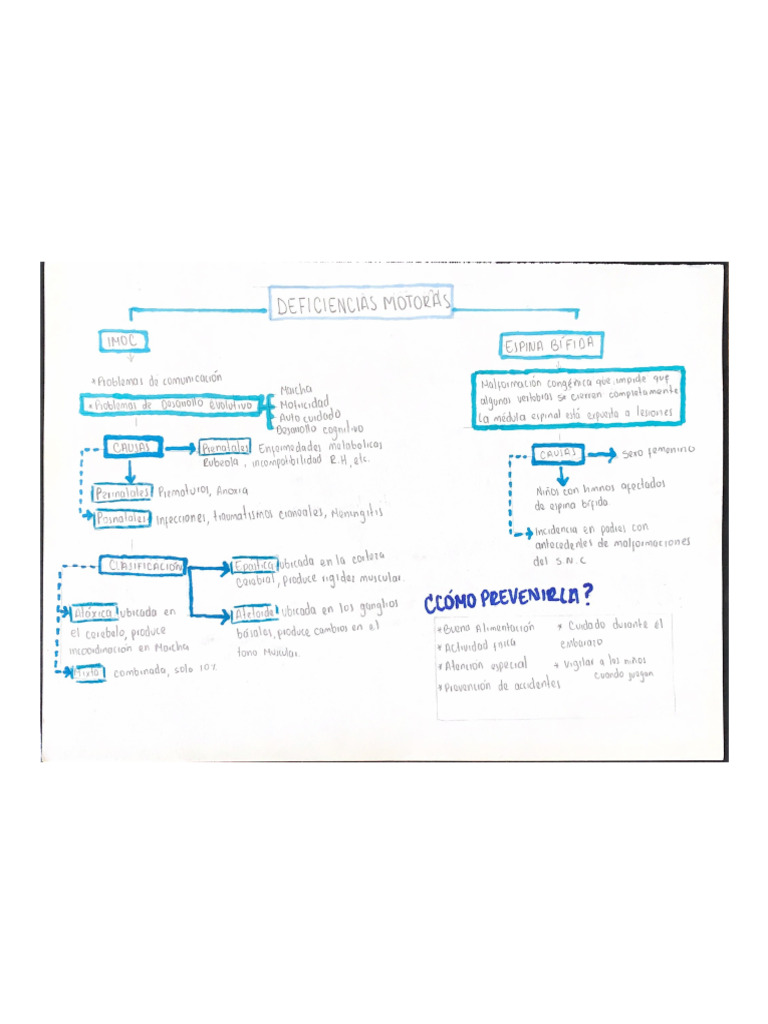 DEFICIENCIAS MOTORAS
IMOC
*Problemas de comunicación
*Problemas de Desarrollo evolutivo
Marcha
Motricidad
Auto cuidado
Desarollo cognitivo
CAUSAS
Prenatales Enfermedades metabolicas
Rubeola, incompatibilidad R.H, etc.
Perinatales Prematuros, Anoxia
Posnatales Infecciones, traumatismos craneales, Meningitis
CLASIFICACIÓN
Epastica ubicada en la corteza
cerebral, produce rigidez muscular.
Atóxica ubicada en
el cerebelo, produce
incoordinación en Marcha
Afetoide ubicada en los ganglios
basales, produce cambios en el
tono Muscular.
Mixta combinada, solo 10%
ESPINA BÍFIDA
Malformación congénica que impide que
algunas vertebras se cierran completamente
La médula espinal está expuesta a lesiones
CAUSAS
Sexo femenino
Niños con hmnos afectados
de espina bífida
Incidencia en padres con
antecedentes de malformaciones
del S.N.C
¿CÓMO PREVENIRLA?
*Buena Alimentación
*Actividad física
*Atención especial
*Prevención de accidentes
* Cuidado durante el
embarazo
+ Vigilar a los niños
cuando juegan